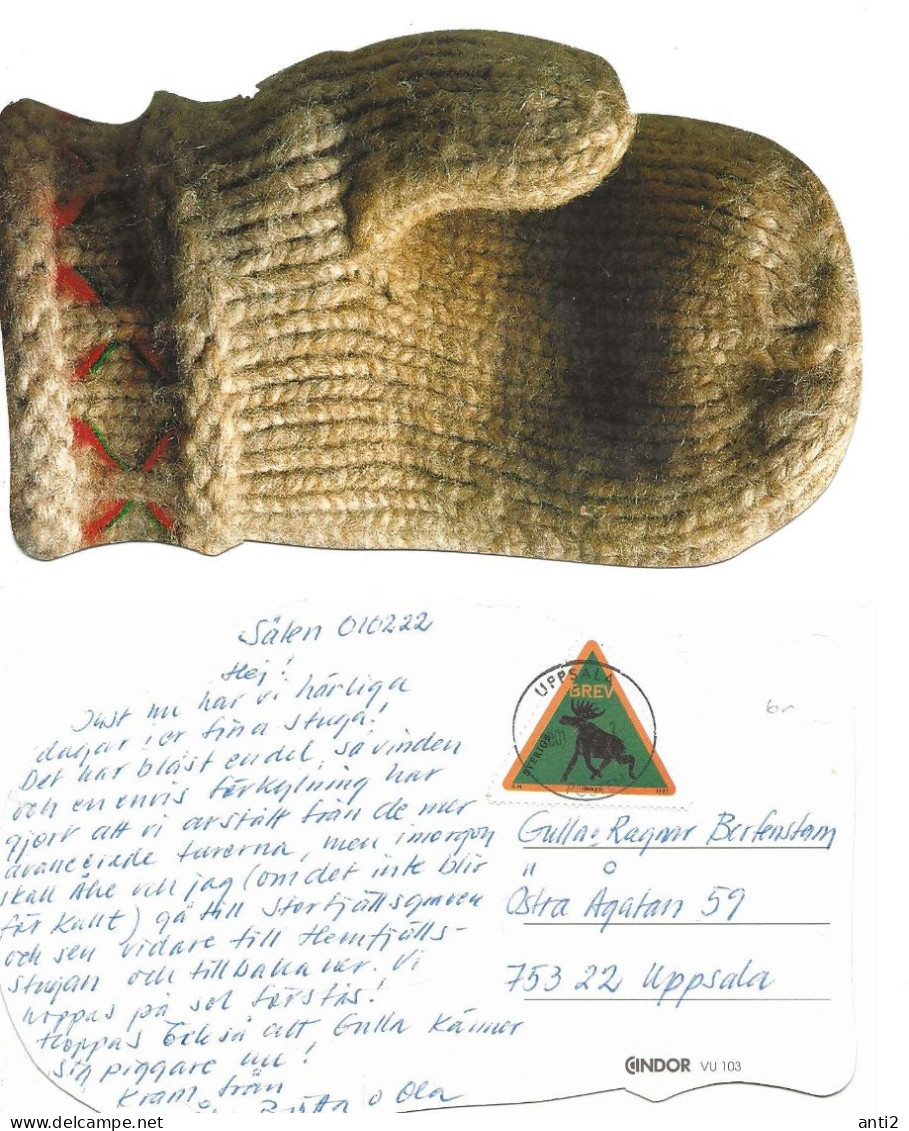 Sälen 010222
Hej!
Just nu har vi härliga
dagar i er fina stuga!
Det har blåst en del, så vinden
och en envis förkylning har
gjort att vi avstått från de mer
avancerade turerna, men imorgon
skall Åke och jag (om det inte blir
för kallt) gå till Storfjällsgraven
och sen vidare till Hemfjälls-
stugan och tillbaka ner. Vi
hoppas på sol förstås!
Hoppas också att Gulla känner
sig piggare nu!
Kram från
Britta o Ola
UPPSALA
BREV
SVERIGE
1992
br
Gulla o Ragnar Bertenstam
Östra Ågatan 59
753 22 Uppsala
CINDOR VU 103
anti2